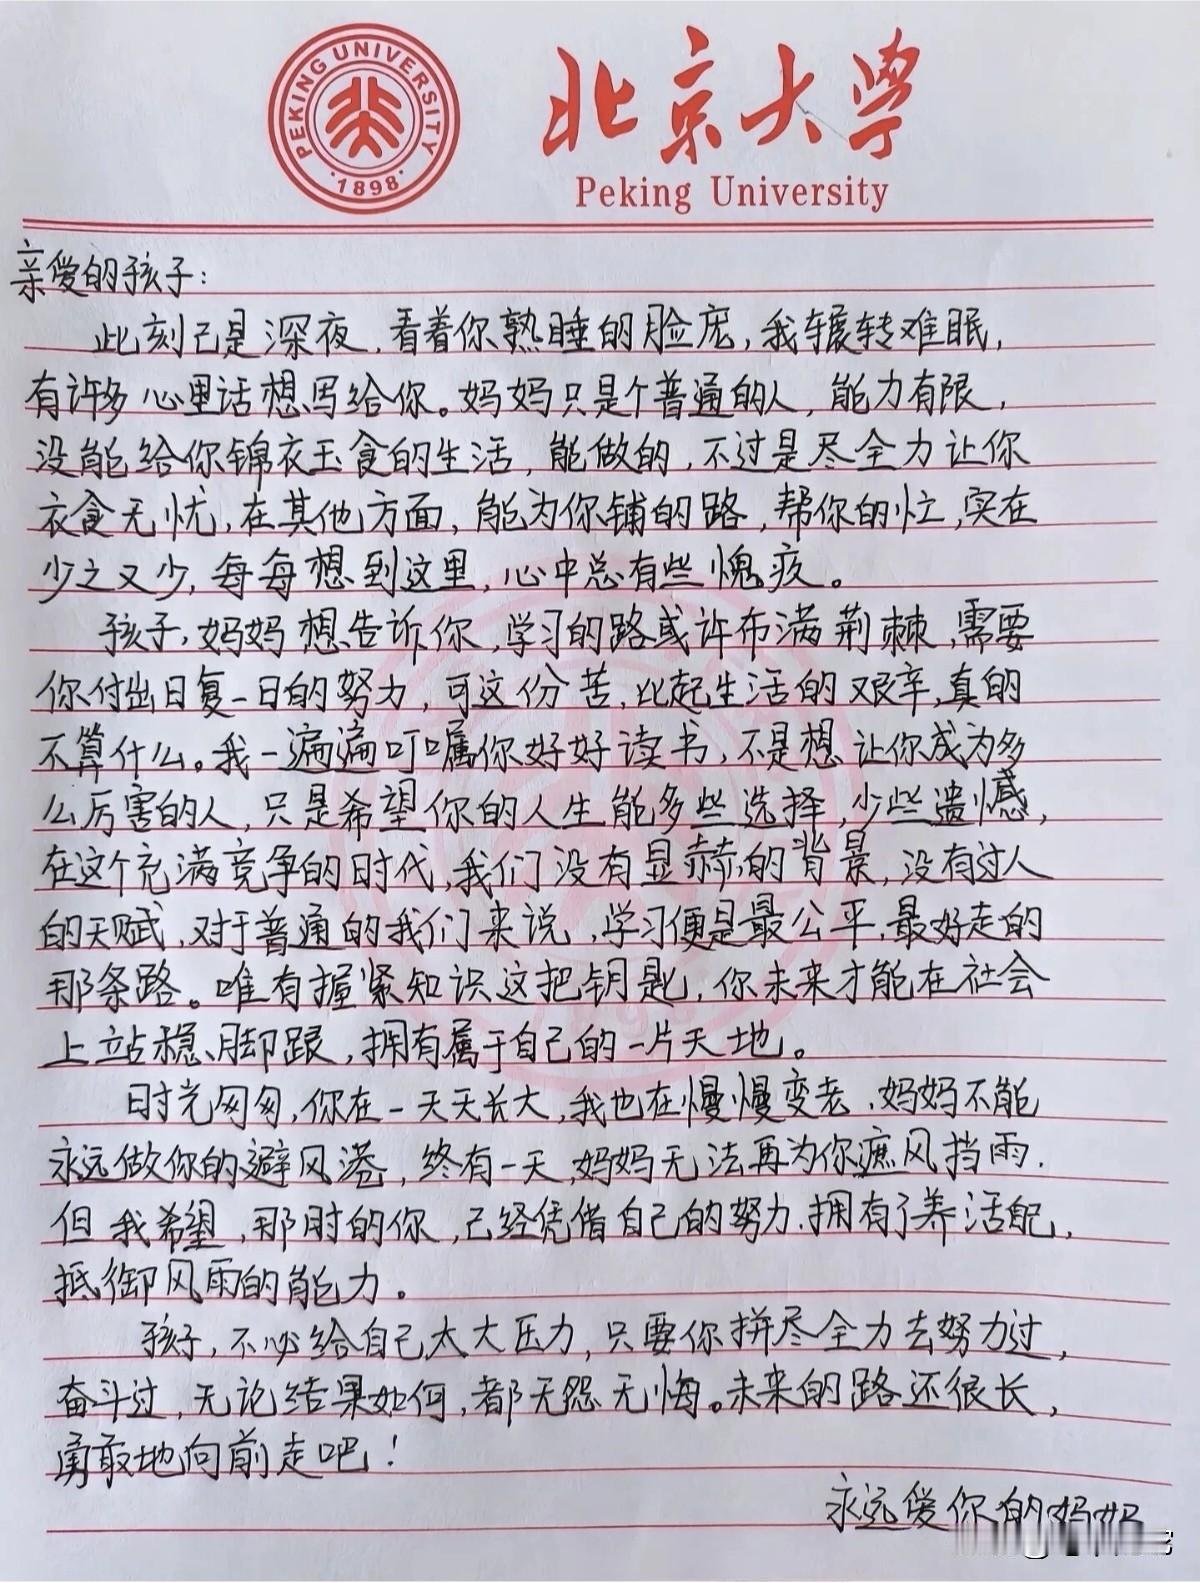 PEKING UNIVERSITY
1898
北京大学
Peking University
亲爱的孩子：
此刻已是深夜，看着你熟睡的脸庞，我辗转难眠，
有许多心里话想写给你。妈妈只是个普通的人，能力有限，
没能给你锦衣玉食的生活，能做的，不过是尽全力让你
衣食无忧，在其他方面，能为你铺的路，帮你的忙，实在
少之又少，每每想到这里，心中总有些愧疚。
孩子，妈妈想告诉你，学习的路或许布满荆棘，需要
你付出日复一日的努力，可这份苦，比起生活的艰辛，真的
不算什么。我一遍遍叮嘱你好好读书，不是想让你成为多
么厉害的人，只是希望你的人生能多些选择，少些遗憾，
在这个充满竞争的时代，我们没有显赫的背景，没有过人
的天赋，对于普通的我们来说，学习便是最公平，最好走的
那条路。唯有握紧知识这把钥匙，你未来才能在社会
上站稳脚跟，拥有属于自己的一片天地。
时光匆匆，你在一天天长大，我也在慢慢变老，妈妈不能
永远做你的避风港，终有一天，妈妈无法再为你遮风挡雨，
但我希望，那时的你，已经凭借自己的努力，拥有了养活自己，
抵御风雨的能力。
孩子，不必给自己太大压力，只要你拼尽全力去努力过，
奋斗过，无论结果如何，都无怨无悔。未来的路还很长，
勇敢地向前走吧！
永远爱你的妈妈